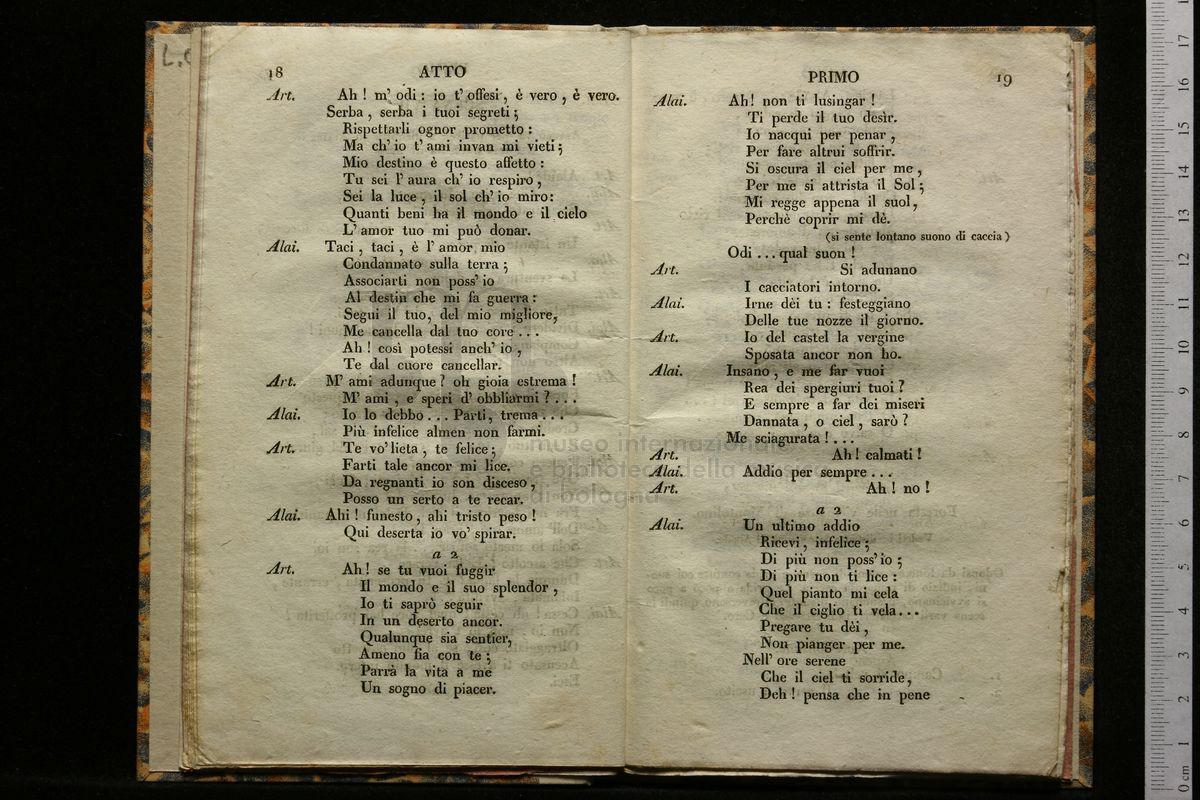 L.
18
ATTO
Art. Ah ! m' odi : io t' offesi , è vero , è vero.
Serba , serba i tuoi segreti ;
Rispettarli ognor prometto :
Ma ch' io t' ami invan mi vieti ;
Mio destino è questo affetto :
Tu sei l' aura ch' io respiro ,
Sei la luce , il sol ch' io miro :
Quanti beni ha il mondo e il cielo
L' amor tuo mi può donar.
Alai. Taci , taci , è l' amor mio
Condannato sulla terra ;
Associarti non poss' io
Al destin che mi fa guerra :
Segui il tuo, del mio migliore,
Me cancella dal tuo core . . .
Ah ! così potessi anch' io ,
Te dal cuore cancellar.
Art. M' ami adunque ? oh gioia estrema !
M' ami , e speri d' obbliarmi ? . . .
Alai. Io lo debbo . . . Parti, trema . . .
Più infelice almen non farmi.
Art. Te vo' lieta , te felice ;
Farti tale ancor mi lice.
Da regnanti io son disceso ,
Posso un serto a te recar.
Alai. Ahi ! funesto , ahi tristo peso !
Qui deserta io vo' spirar.
a 2
Art. Ah ! se tu vuoi fuggir
Il mondo e il suo splendor ,
Io ti saprò seguir
In un deserto ancor.
Qualunque sia sentier,
Ameno fia con te ;
Parrà la vita a me
Un sogno di piacer.
PRIMO
19
Alai. Ah ! non ti lusingar !
Ti perde il tuo desir.
Io nacqui per penar ,
Per fare altrui soffrir.
Si oscura il ciel per me ,
Per me si attrista il Sol ;
Mi regge appena il suol,
Perchè coprir mi dè.
(si sente lontano suono di caccia)
Odi . . . qual suon !
Art. Si adunano
I cacciatori intorno.
Alai. Irne dèi tu : festeggiano
Delle tue nozze il giorno.
Art. Io del castel la vergine
Sposata ancor non ho.
Alai. Insano , e me far vuoi
Rea dei spergiuri tuoi ?
E sempre a far dei miseri
Dannata , o ciel , sarò ?
Me sciagurata ! . . .
Art. Ah ! calmati !
Alai. Addio per sempre . . .
Art. Ah ! no !
a 2
Alai. Un ultimo addio
Ricevi , infelice ;
Di più non poss' io ;
Di più non ti lice :
Quel pianto mi cela
Che il ciglio ti vela . . .
Pregare tu dèi ,
Non pianger per me.
Nell' ore serene
Che il ciel ti sorride,
Deh ! pensa che in pene
museo internazionale
e biblioteca della
di bologna
0 cm 1 2 3 4 5 6 7 8 9 10 11 12 13 14 15 16 17